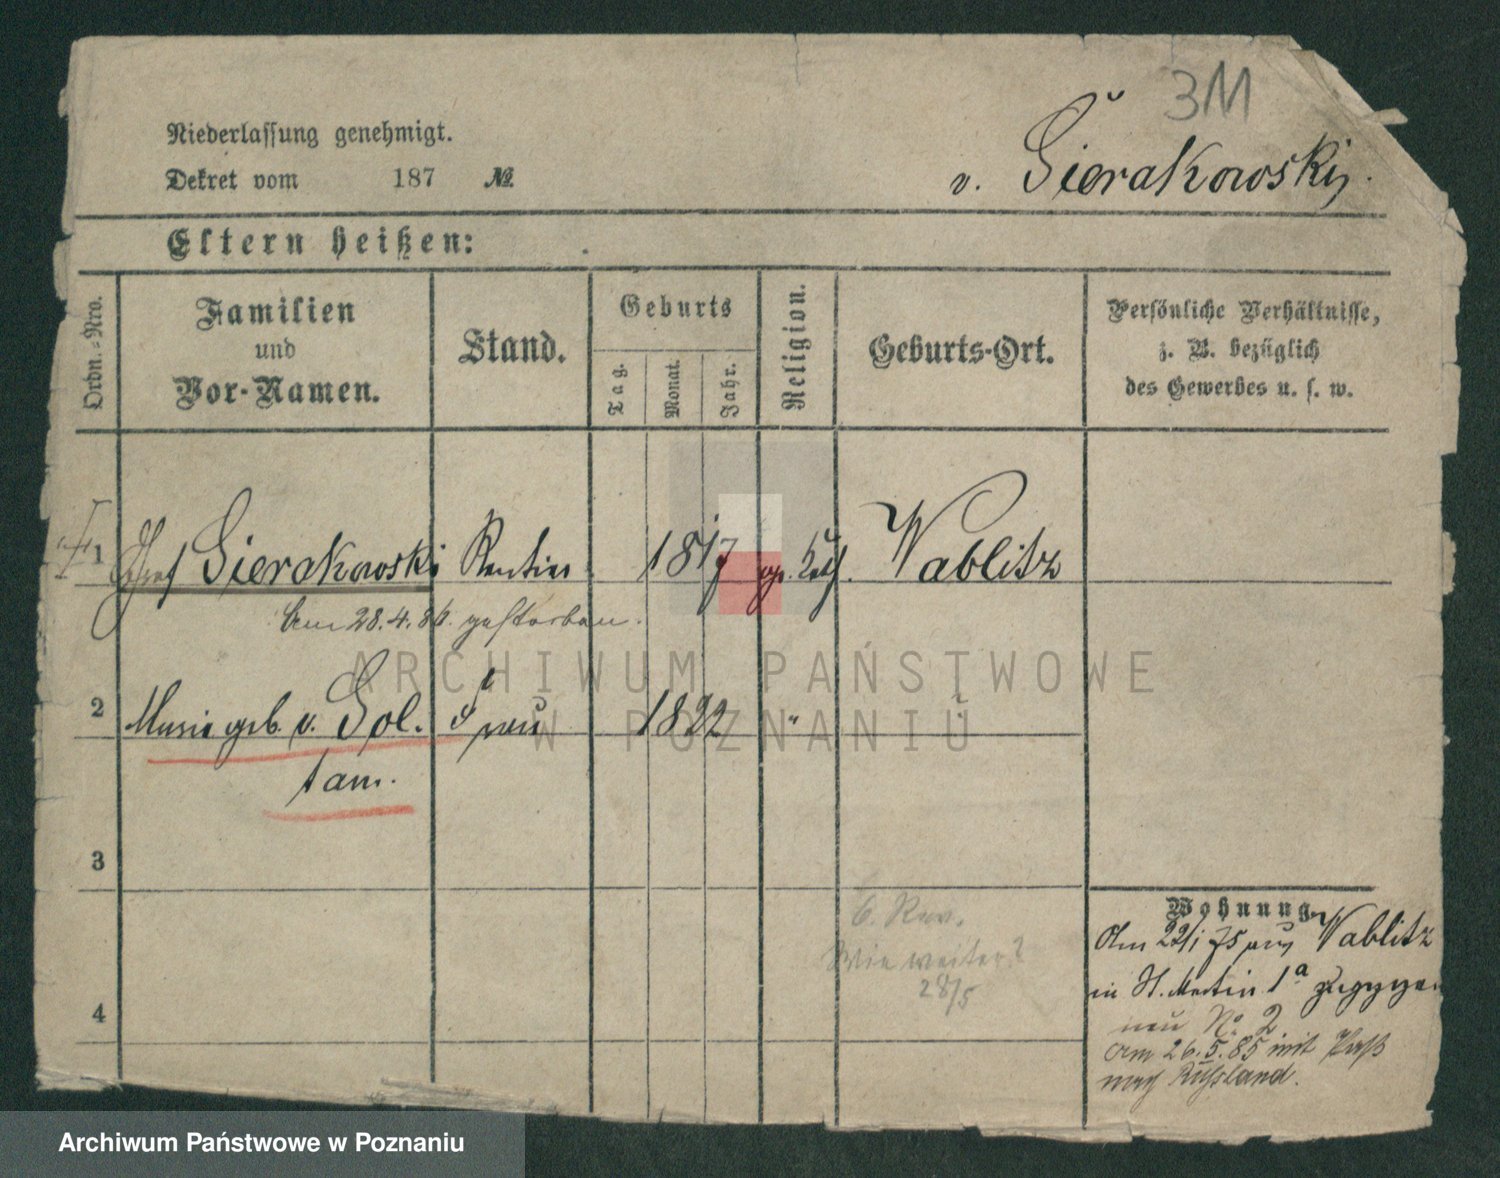 3M
Niederlassung genehmigt.
Dekret vom 187 №
v. Sierakowski.
Eltern heißen:
Ordn.-Nro.
Familien
und
Vor-Namen.
Stand.
Geburts
Tag.
Monat.
Jahr.
Religion.
Geburts-Ort.
Persönliche Verhältnisse,
z. B. bezüglich
des Gewerbes u. s. w.
1 Sierakowski Rentier 1817 Kath. Wablitz
Am 28.4.86. gestorben.
2 Marie geb. v. Sol- Frau 1822 "
tan.
3
4
Wie weiter?
28/5
Wohnung
Am 22/1 75 aus Wablitz
in St. Martin 1a zugezogen
neu No. 2
am 26.5.85 mit Paß
nach Russland.
ARCHIWUM PAŃSTWOWE
W POZNANIU
Archiwum Państwowe w Poznaniu